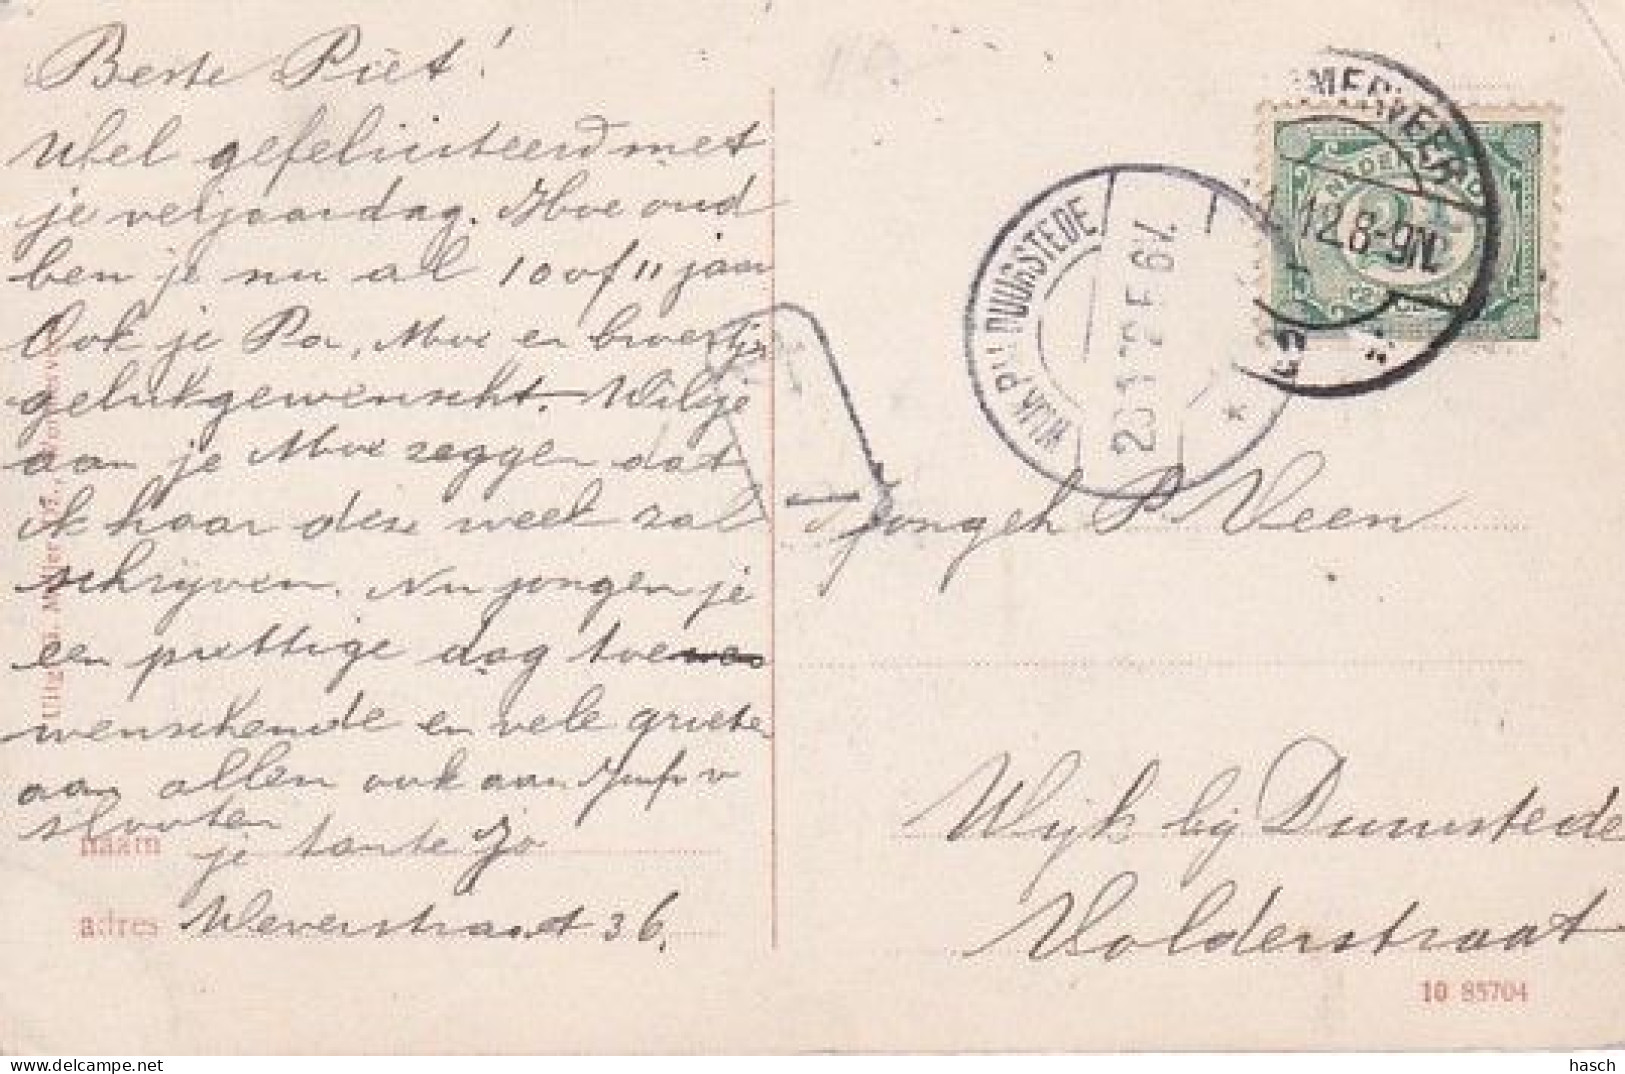 Beste Piet!
Wel gefeliciteerd met
je verjaardag. Hoe oud
ben je nu al 10 of 11 jaar
Ook je Pa, Moe en broertje
gelukgewenscht. Wil je
aan je Moe zeggen dat
ik haar deze week zal
schrijven. Nu jongen je
een prettige dag toe
wenschende en vele groeten
aan allen ook aan Juf v
slooten
je tante Jo
naam
adres Weverstraat 36.
Jongeh P Veen
Wijk bij Duurstede
Volderstraat
10 85704
WIJK Bij DUURSTEDE
23 1 12 5-6N.
12 8-9N
hasch